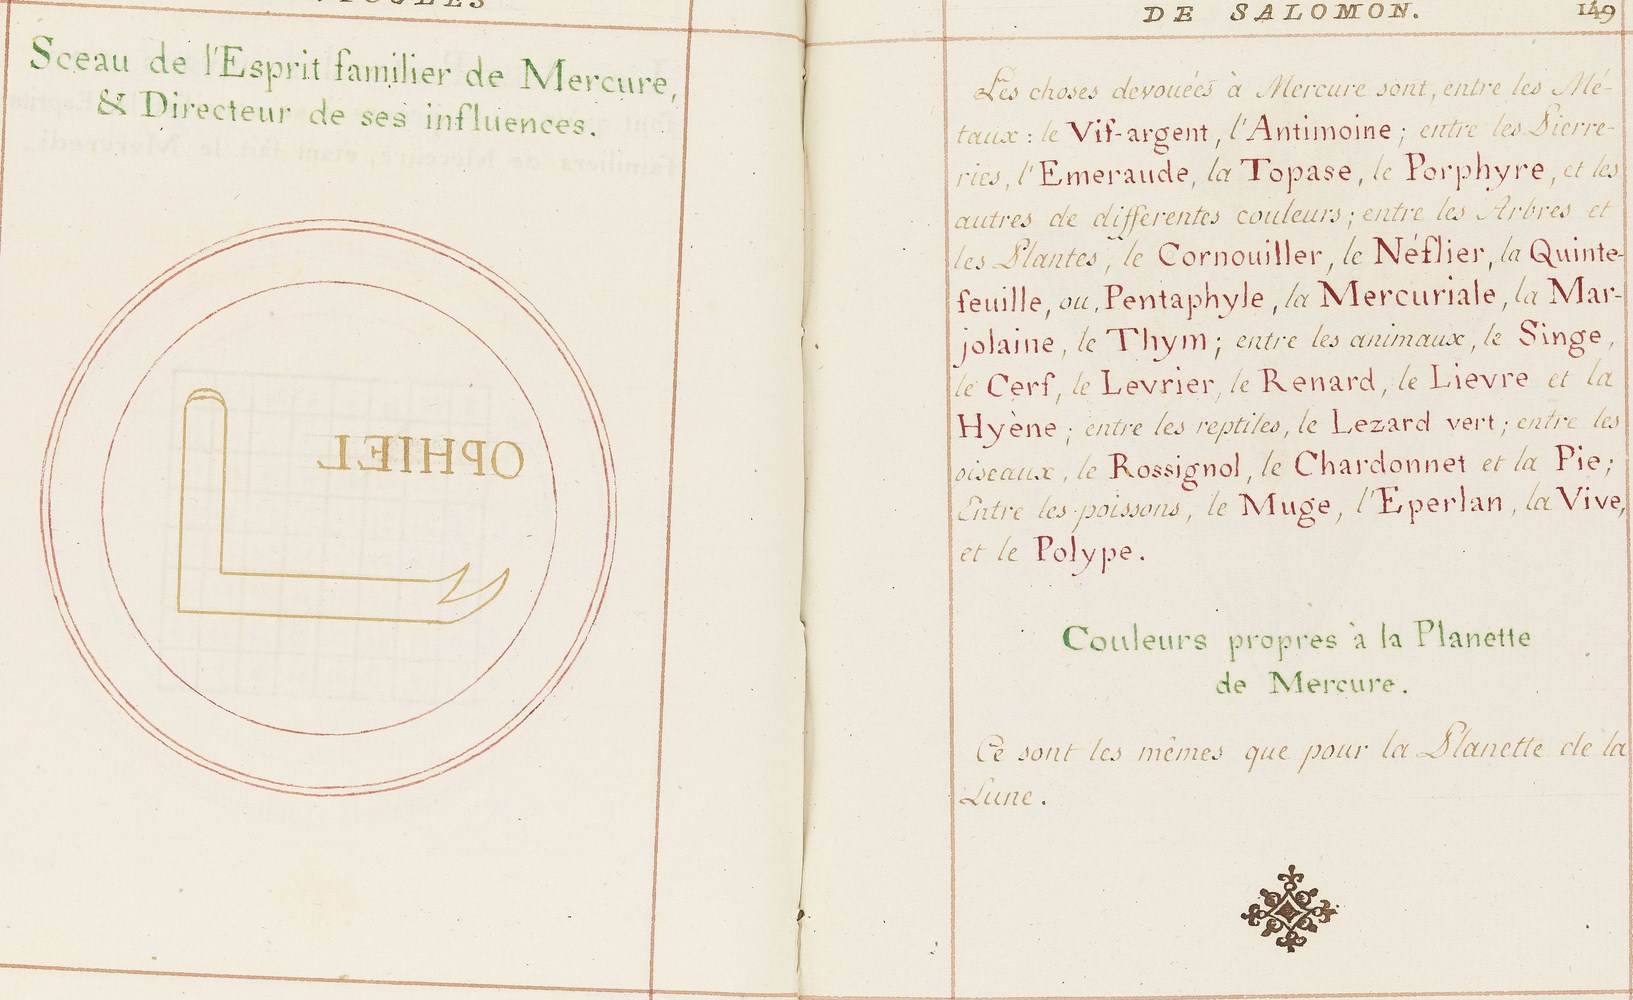 Sceau de l'Esprit familier de Mercure,
& Directeur de ses influences.
OPHIEL
DE SALOMON. 149
Les choses devouées à Mercure sont, entre les Mé-
taux : le Vif-argent, l'Antimoine ; entre les Pierre-
ries, l'Emeraude, la Topase, le Porphyre, et les
autres de differentes couleurs ; entre les Arbres et
les Plantes, le Cornouiller, le Néflier, la Quinte-
feuille, ou, Pentaphyle, la Mercuriale, la Mar-
jolaine, le Thym ; entre les animaux, le Singe,
le Cerf, le Levrier, le Renard, le Lievre et la
Hyène ; entre les reptiles, le Lezard vert ; entre les
oiseaux, le Rossignol, le Chardonnet et la Pie ;
Entre les poissons, le Muge, l'Eperlan, la Vive,
et le Polype.
Couleurs propres à la Planette
de Mercure.
Ce sont les mêmes que pour la Planette de la
Lune.